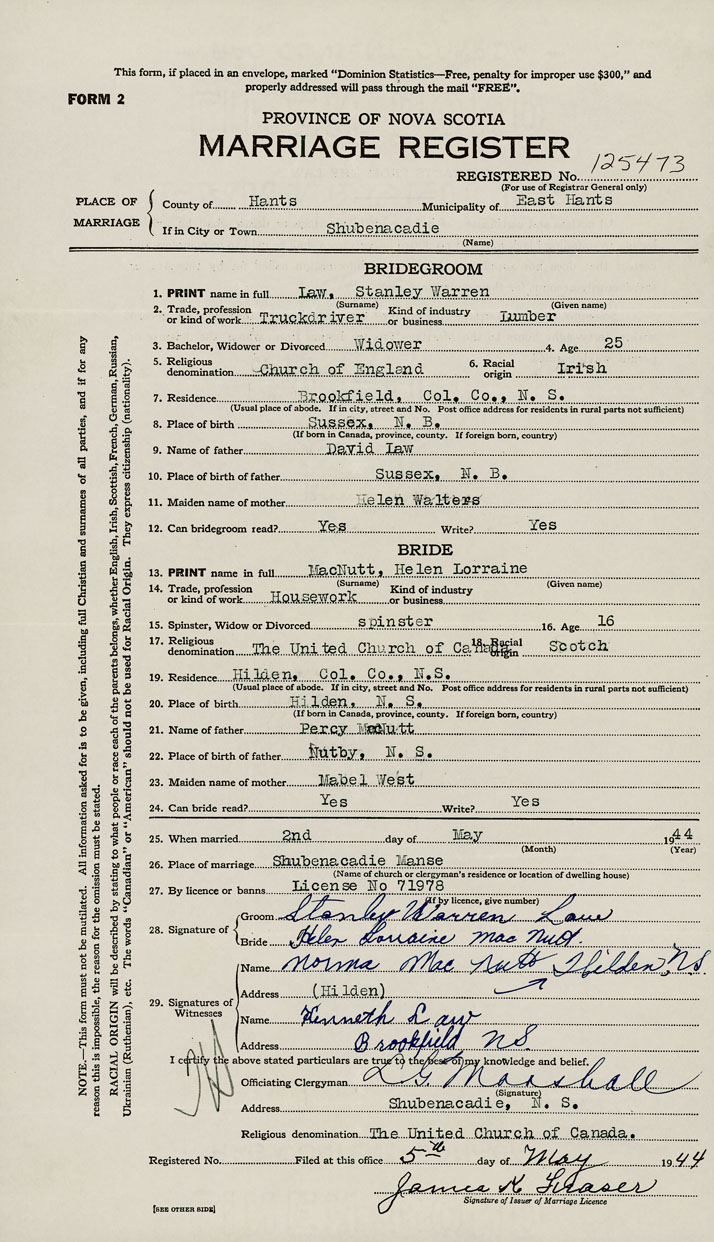 This form, if placed in an envelope, marked "Dominion Statistics—Free, penalty for improper use $300," and
properly addressed will pass through the mail "FREE".
FORM 2
PROVINCE OF NOVA SCOTIA
MARRIAGE REGISTER
REGISTERED No. 125473
(For use of Registrar General only)
PLACE OF MARRIAGE
County of Hants Municipality of East Hants
If in City or Town Shubenacadie
(Name)
BRIDEGROOM
1. PRINT name in full Law, Stanley Warren
(Surname) (Given name)
2. Trade, profession or kind of work Truckdriver Kind of industry or business Lumber
3. Bachelor, Widower or Divorced Widower 4. Age 25
5. Religious denomination Church of England 6. Racial origin Irish
7. Residence Brookfield, Col. Co., N. S.
(Usual place of abode. If in city, street and No. Post office address for residents in rural parts not sufficient)
8. Place of birth Sussex, N. B.
(If born in Canada, province, county. If foreign born, country)
9. Name of father David Law
10. Place of birth of father Sussex, N. B.
11. Maiden name of mother Helen Walters
12. Can bridegroom read? Yes Write? Yes
BRIDE
13. PRINT name in full MacNutt, Helen Lorraine
(Surname) (Given name)
14. Trade, profession or kind of work Housework Kind of industry or business
15. Spinster, Widow or Divorced spinster 16. Age 16
17. Religious denomination The United Church of Canada 18. Racial origin Scotch
19. Residence Hilden, Col. Co., N.S.
(Usual place of abode. If in city, street and No. Post office address for residents in rural parts not sufficient)
20. Place of birth Hilden, N. S.
(If born in Canada, province, county. If foreign born, country)
21. Name of father Percy McNutt
22. Place of birth of father Nutby, N. S.
23. Maiden name of mother Mabel West
24. Can bride read? Yes Write? Yes
25. When married 2nd day of May 1944
(Month) (Year)
26. Place of marriage Shubenacadie Manse
(Name of church or clergyman's residence or location of dwelling house)
27. By licence or banns License No 71978
(If by licence, give number)
28. Signature of
Groom Stanley Warren Law
Bride Helen Lorraine Mac Nutt.
29. Signatures of Witnesses
Name Norma Mac Nutt Hilden, N.S.
Address (Hilden)
Name Kenneth Law
Address Brookfield NS
I certify the above stated particulars are true to the best of my knowledge and belief.
Officiating Clergyman L. G. Marshall
(Signature)
Address Shubenacadie, N. S.
Religious denomination The United Church of Canada.
Registered No. Filed at this office 5th day of May 1944
James K Fraser
Signature of Issuer of Marriage Licence
[SEE OTHER SIDE]
NOTE.—This form must not be mutilated. All information asked for is to be given, including full Christian and surnames of all parties, and if for any
reason this is impossible, the reason for the omission must be stated.
RACIAL ORIGIN will be described by stating to what people or race each of the parents belongs, whether English, Irish, Scottish, French, German, Russian,
Ukrainian (Ruthenian), etc. The words "Canadian" or "American" should not be used for Racial Origin. They express citizenship (nationality).